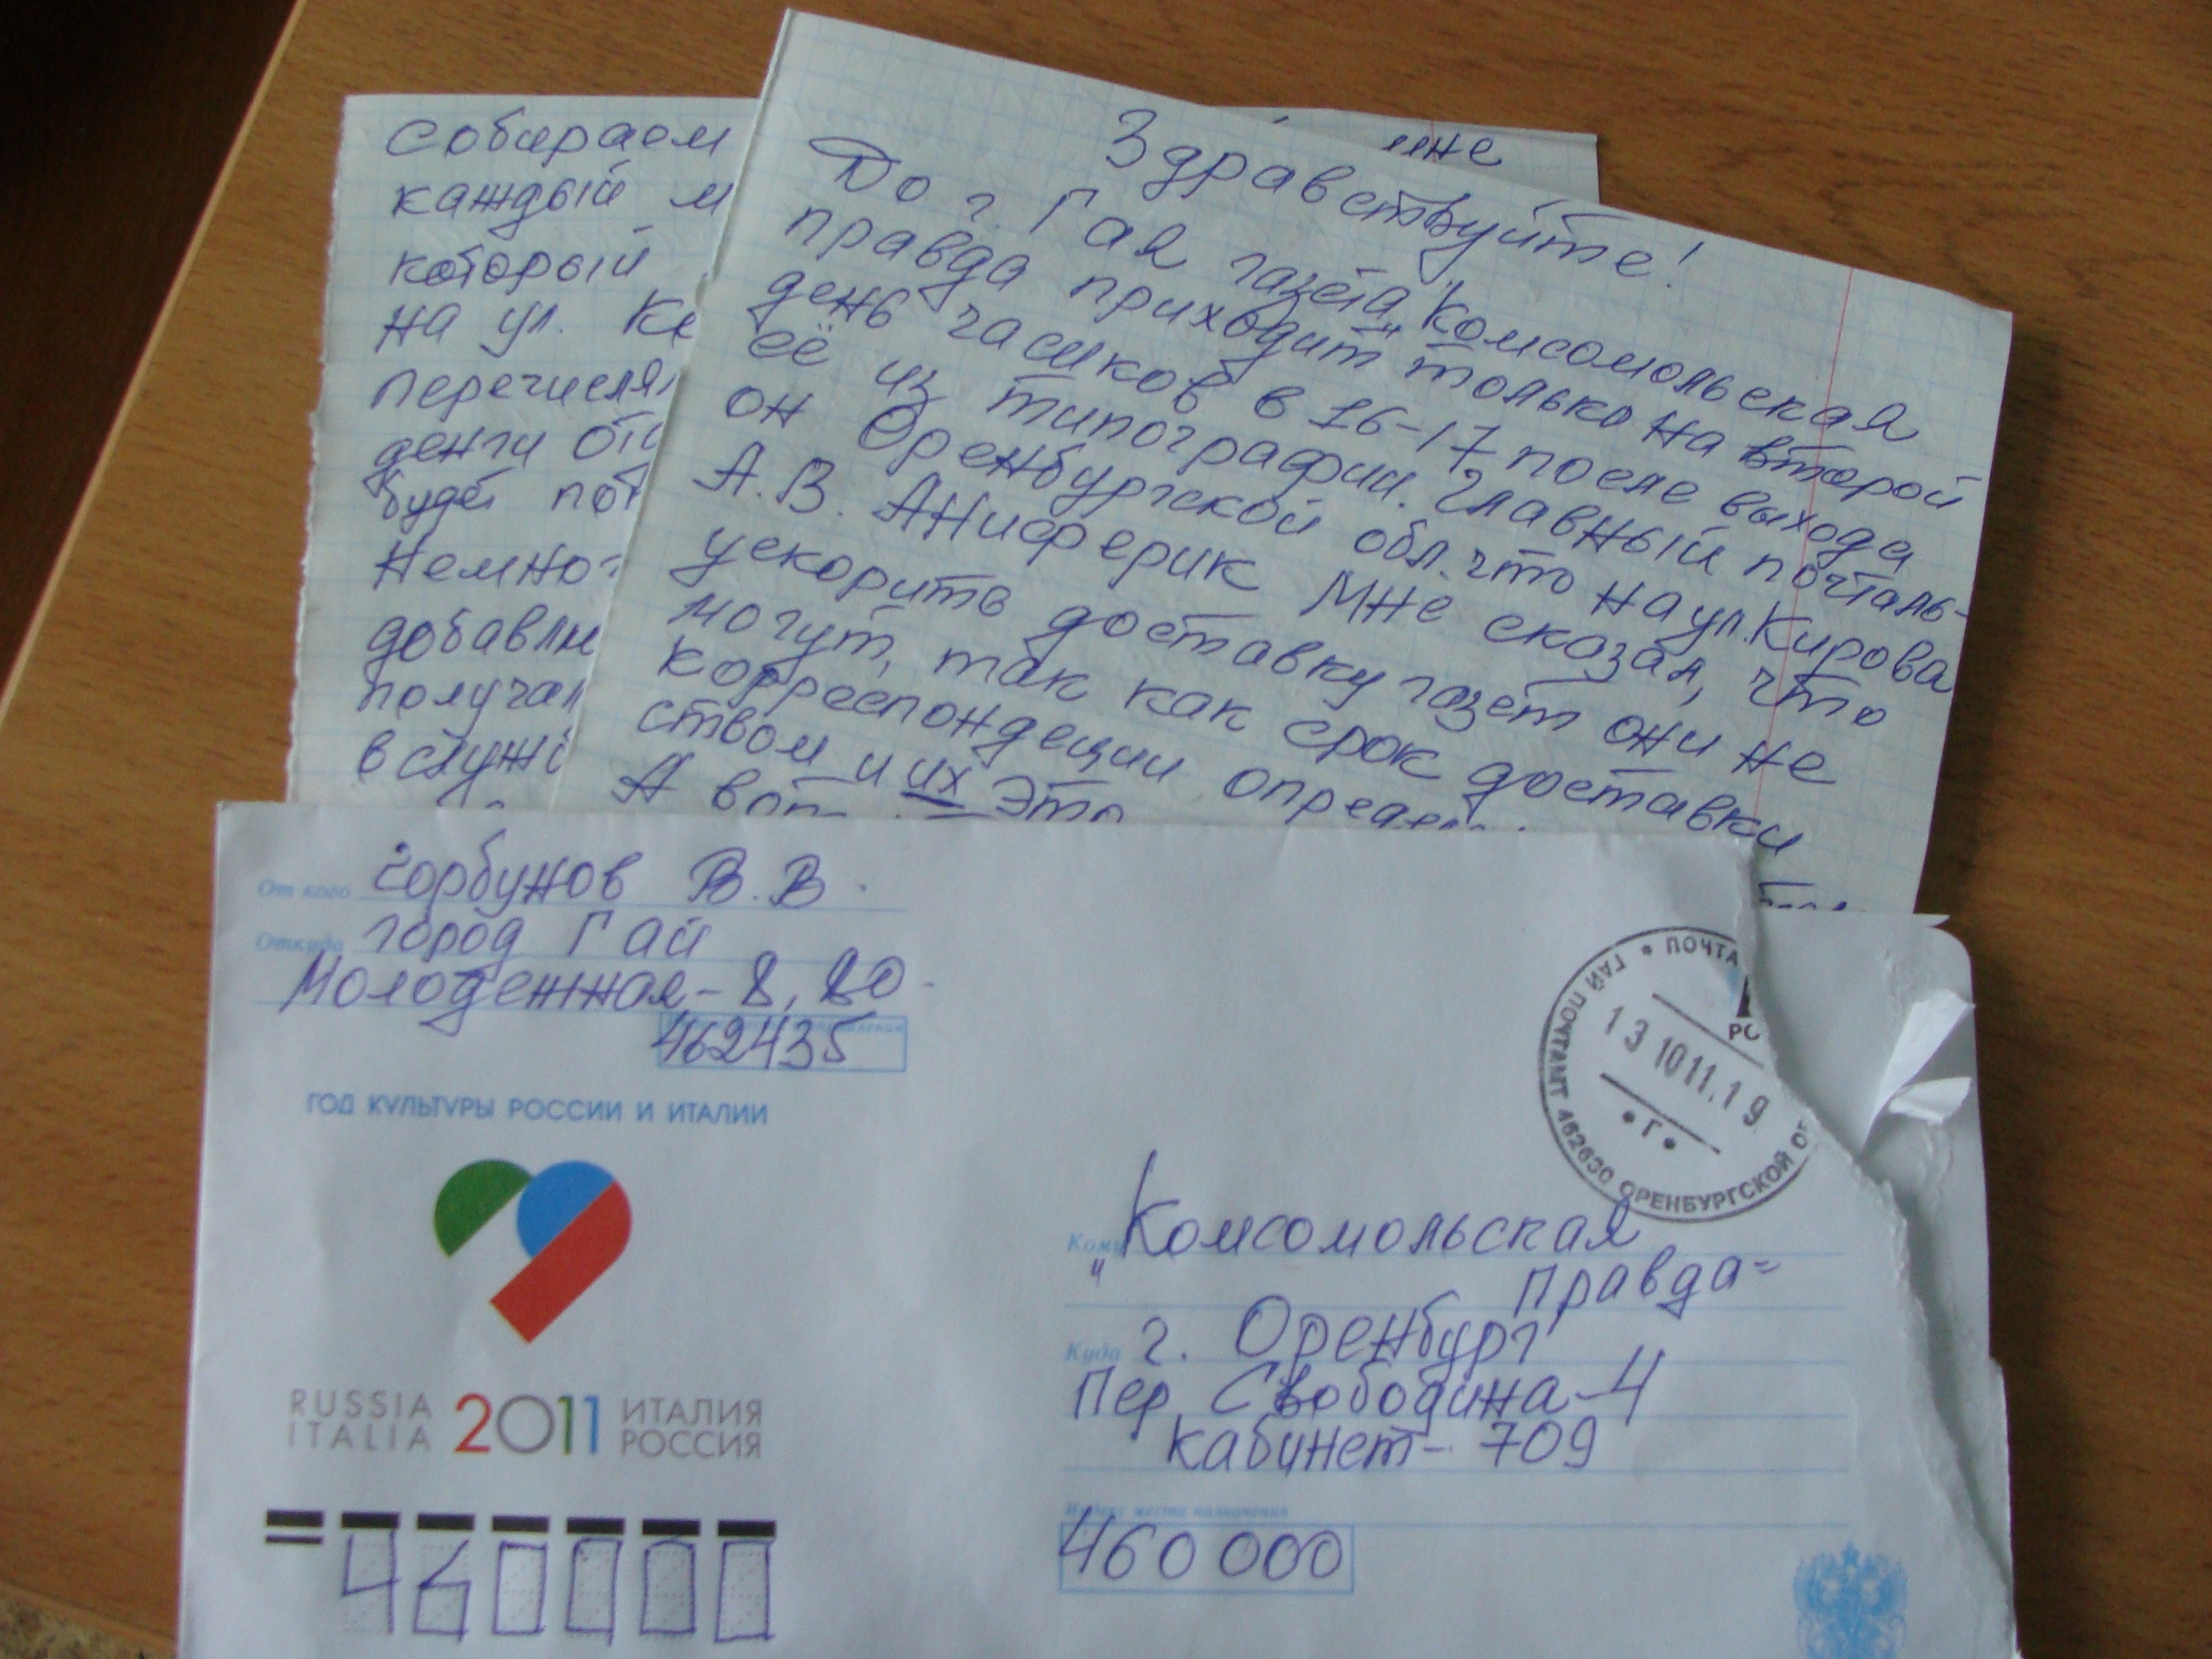 собираем
каждый м
который
на ул. Ки
перечисля
денги отс
будет пот
Немног
добавлю
получал
в служб
Здравствуйте!
До г. Гая газета „Комсомольская
правда" приходит только на второй
день часиков в 16-17 после выхода
её из типографии. Главный почталь-
он Оренбургской обл. что на ул. Кирова
А.В. Аниферик мне сказал, что
ускорить доставку газет они не
могут, так как срок доставки
корреспондеции определ
ством и их это
А вот
От кого Горбунов В.В.
Откуда город Гай
Молодежная-8, 20.
462435
ГОД КУЛЬТУРЫ РОССИИ И ИТАЛИИ
RUSSIA 2011 ИТАЛИЯ
ITALIA РОССИЯ
460000
ПОЧТА РО
13 10 11.19
• Г •
ГАЙ ПОЧТАМТ 462630 ОРЕНБУРГСКОЙ ОБ
Кому „Комсомольская
правда"
Куда г. Оренбург
пер. Свободина-4
кабинет-709
Индекс места назначения
460000